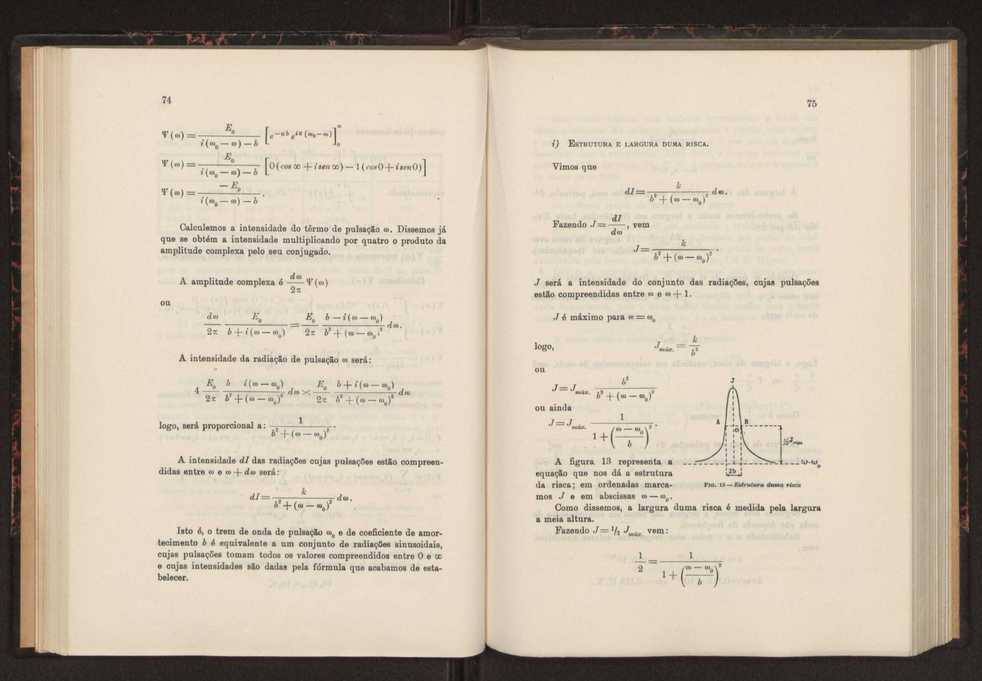 74
Ψ(ω) = E₀ / (i(ω₀ — ω) — b) [e^(−ab) e^(ia(ω₀−ω))]₀^∞
Ψ(ω) = E₀ / (i(ω₀ — ω) — b) [0(cos ∞ + i sen ∞) — 1(cos 0 + i sen 0)]
Ψ(ω) = — E₀ / (i(ω₀ — ω) — b).
Calculemos a intensidade do têrmo de pulsação ω. Dissemos já
que se obtém a intensidade multiplicando por quatro o produto da
amplitude complexa pelo seu conjugado.
A amplitude complexa é dω/2π Ψ(ω)
ou
dω/2π E₀ / (b + i(ω — ω₀)) = E₀/2π (b — i(ω — ω₀)) / (b² + (ω — ω₀)²) dω.
A intensidade da radiação de pulsação ω será:
4 E₀/2π (b i(ω — ω₀)) / (b² + (ω — ω₀)²) dω × E₀/2π (b + i(ω — ω₀)) / (b² + (ω — ω₀)²) dω
logo, será proporcional a: 1 / (b² + (ω — ω₀)²).
A intensidade dI das radiações cujas pulsações estão compreen-
didas entre ω e ω + dω será:
dI = k / (b² + (ω — ω₀)²) dω.
Isto é, o trem de onda de pulsação ω₀ e de coeficiente de amor-
tecimento b é equivalente a um conjunto de radiações sinusoidais,
cujas pulsações tomam todos os valores compreendidos entre 0 e ∞
e cujas intensidades são dadas pela fórmula que acabamos de esta-
belecer.
75
i) Estrutura e largura duma risca.
Vimos que
dI = k / (b² + (ω — ω₀)²) dω.
Fazendo J = dI/dω, vem
J = k / (b² + (ω — ω₀)²).
J será a intensidade do conjunto das radiações, cujas pulsações
estão compreendidas entre ω e ω + 1.
J é máximo para ω = ω₀
logo, J máx. = k/b²
ou
J = J máx. b² / (b² + (ω — ω₀)²)
ou ainda
J = J máx. 1 / (1 + ((ω — ω₀)/b)²).
A figura 13 representa a
equação que nos dá a estrutura
da risca; em ordenadas marca-
mos J e em abscissas ω — ω₀.
J
A B
½ J máx
ω-ω₀
2b
Fig. 13 — Estrutura duma risca
Como dissemos, a largura duma risca é medida pela largura
a meia altura.
Fazendo J = 1/2 J máx. vem:
1/2 = 1 / (1 + ((ω — ω₀)/b)²)